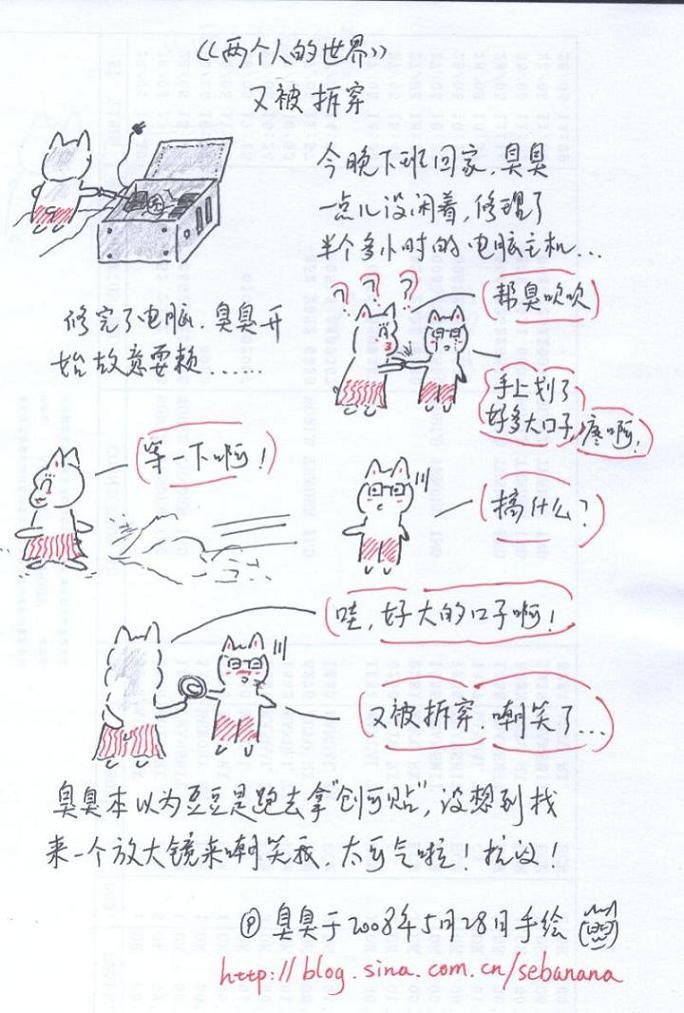 《两个人的世界》
又被拆穿
今晚下班回家，臭臭
一点儿没闲着，修理了
半个多小时的电脑主机...
修完了电脑，臭臭开
始故意耍赖......
? ? ?
帮臭吹吹
手上划了
好多大口子，疼啊！
等一下啊！
搞什么？
哇，好大的口子啊！
又被拆穿、嘲笑了...
臭臭本以为豆豆是跑去拿“创可贴”，没想到找
来一个放大镜来嘲笑我，太可气啦！抗议！
℗ 臭臭于2008年5月28日手绘
http://blog.sina.com.cn/sebanana